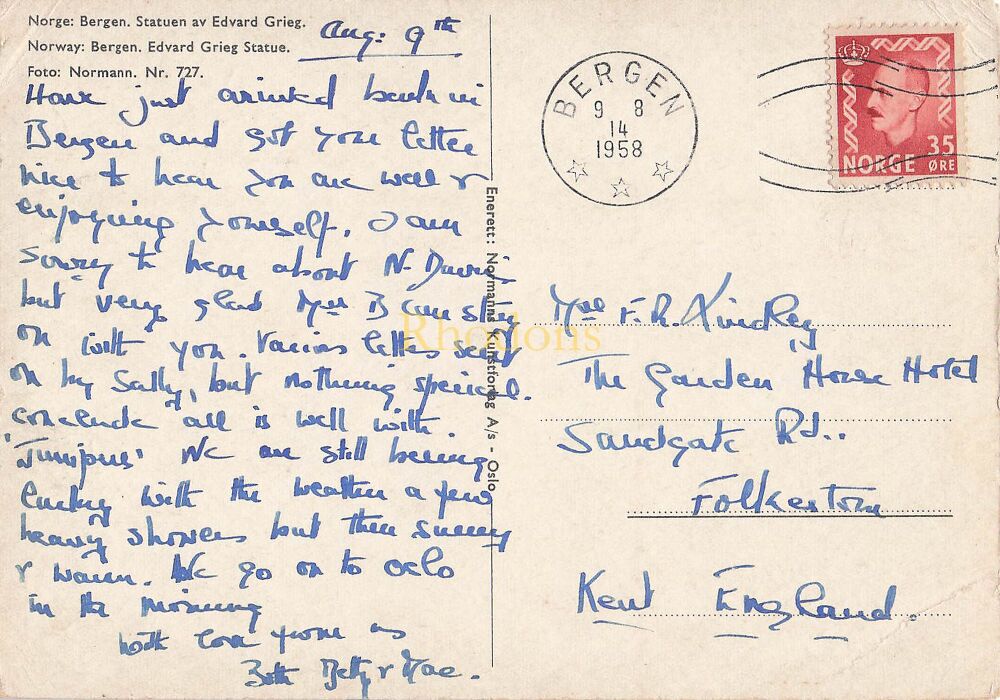 Norge: Bergen. Statuen av Edvard Grieg.
Norway: Bergen. Edvard Grieg Statue.
Foto: Normann. Nr. 727.
Aug: 9th
Have just arrived back in
Bergen and got your letter
nice to hear you are well &
enjoying yourself. I am
sorry to hear about N.
but very glad Mrs B can stay
on with you. Various letters sent
on by Sally, but nothing special.
conclude all is well with
'Junipers' We are still being
lucky with the weather a few
heavy showers but then sunny
& warm. We go on to Oslo
in the morning
With love from us
Both Betty & Mac.
Enerett: Normanns Kunstforlag A/s - Oslo
BERGEN
9 8
14
1958
NORGE 35 ØRE
Rhodons
Mrs F. R. Kindley
The Garden House Hotel
Sandgate Rd..
Folkestone
Kent England.